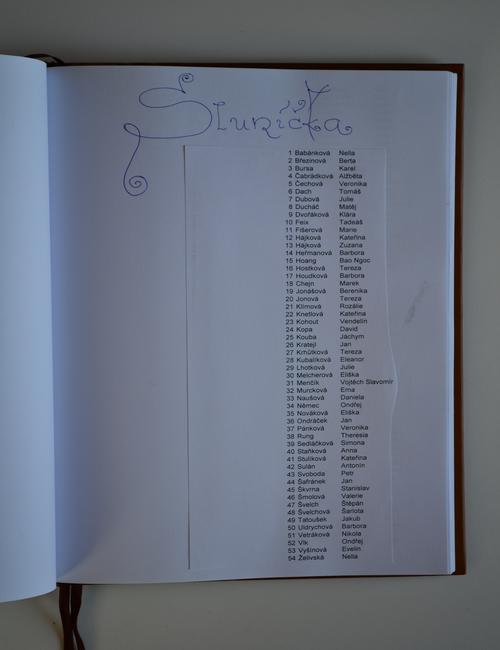 Sluníčka
1 Babánková Nella
2 Březinová Berta
3 Bursa Karel
4 Čabrádková Alžběta
5 Čechová Veronika
6 Dach Tomáš
7 Dubová Julie
8 Ducháč Matěj
9 Dvořáková Klára
10 Feix Tadeáš
11 Fišerová Marie
12 Hájková Kateřina
13 Hájková Zuzana
14 Heřmanová Barbora
15 Hoang Bao Ngoc
16 Hostková Tereza
17 Houdková Barbora
18 Chejn Marek
19 Jonášová Berenika
20 Jonová Tereza
21 Klímová Rozálie
22 Knetlová Kateřina
23 Kohout Vendelín
24 Kopa David
25 Kouba Jáchym
26 Kratejl Jan
27 Krhůtková Tereza
28 Kubalíková Eleanor
29 Lhotková Julie
30 Melcherová Eliška
31 Menčík Vojtěch Slavomír
32 Murcková Ema
33 Naušová Daniela
34 Němec Ondřej
35 Nováková Eliška
36 Ondráček Jan
37 Pánková Veronika
38 Rung Theresia
39 Sedláčková Simona
40 Staňková Anna
41 Stulíková Kateřina
42 Sulán Antonín
43 Svoboda Petr
44 Šafránek Jan
45 Škvrna Stanislav
46 Šmolová Valerie
47 Švelch Štěpán
48 Švelchová Šarlota
49 Tatoušek Jakub
50 Uldrychová Barbora
51 Vetráková Nikola
52 Vlk Ondřej
53 Vyšínová Evelin
54 Želivská Nella